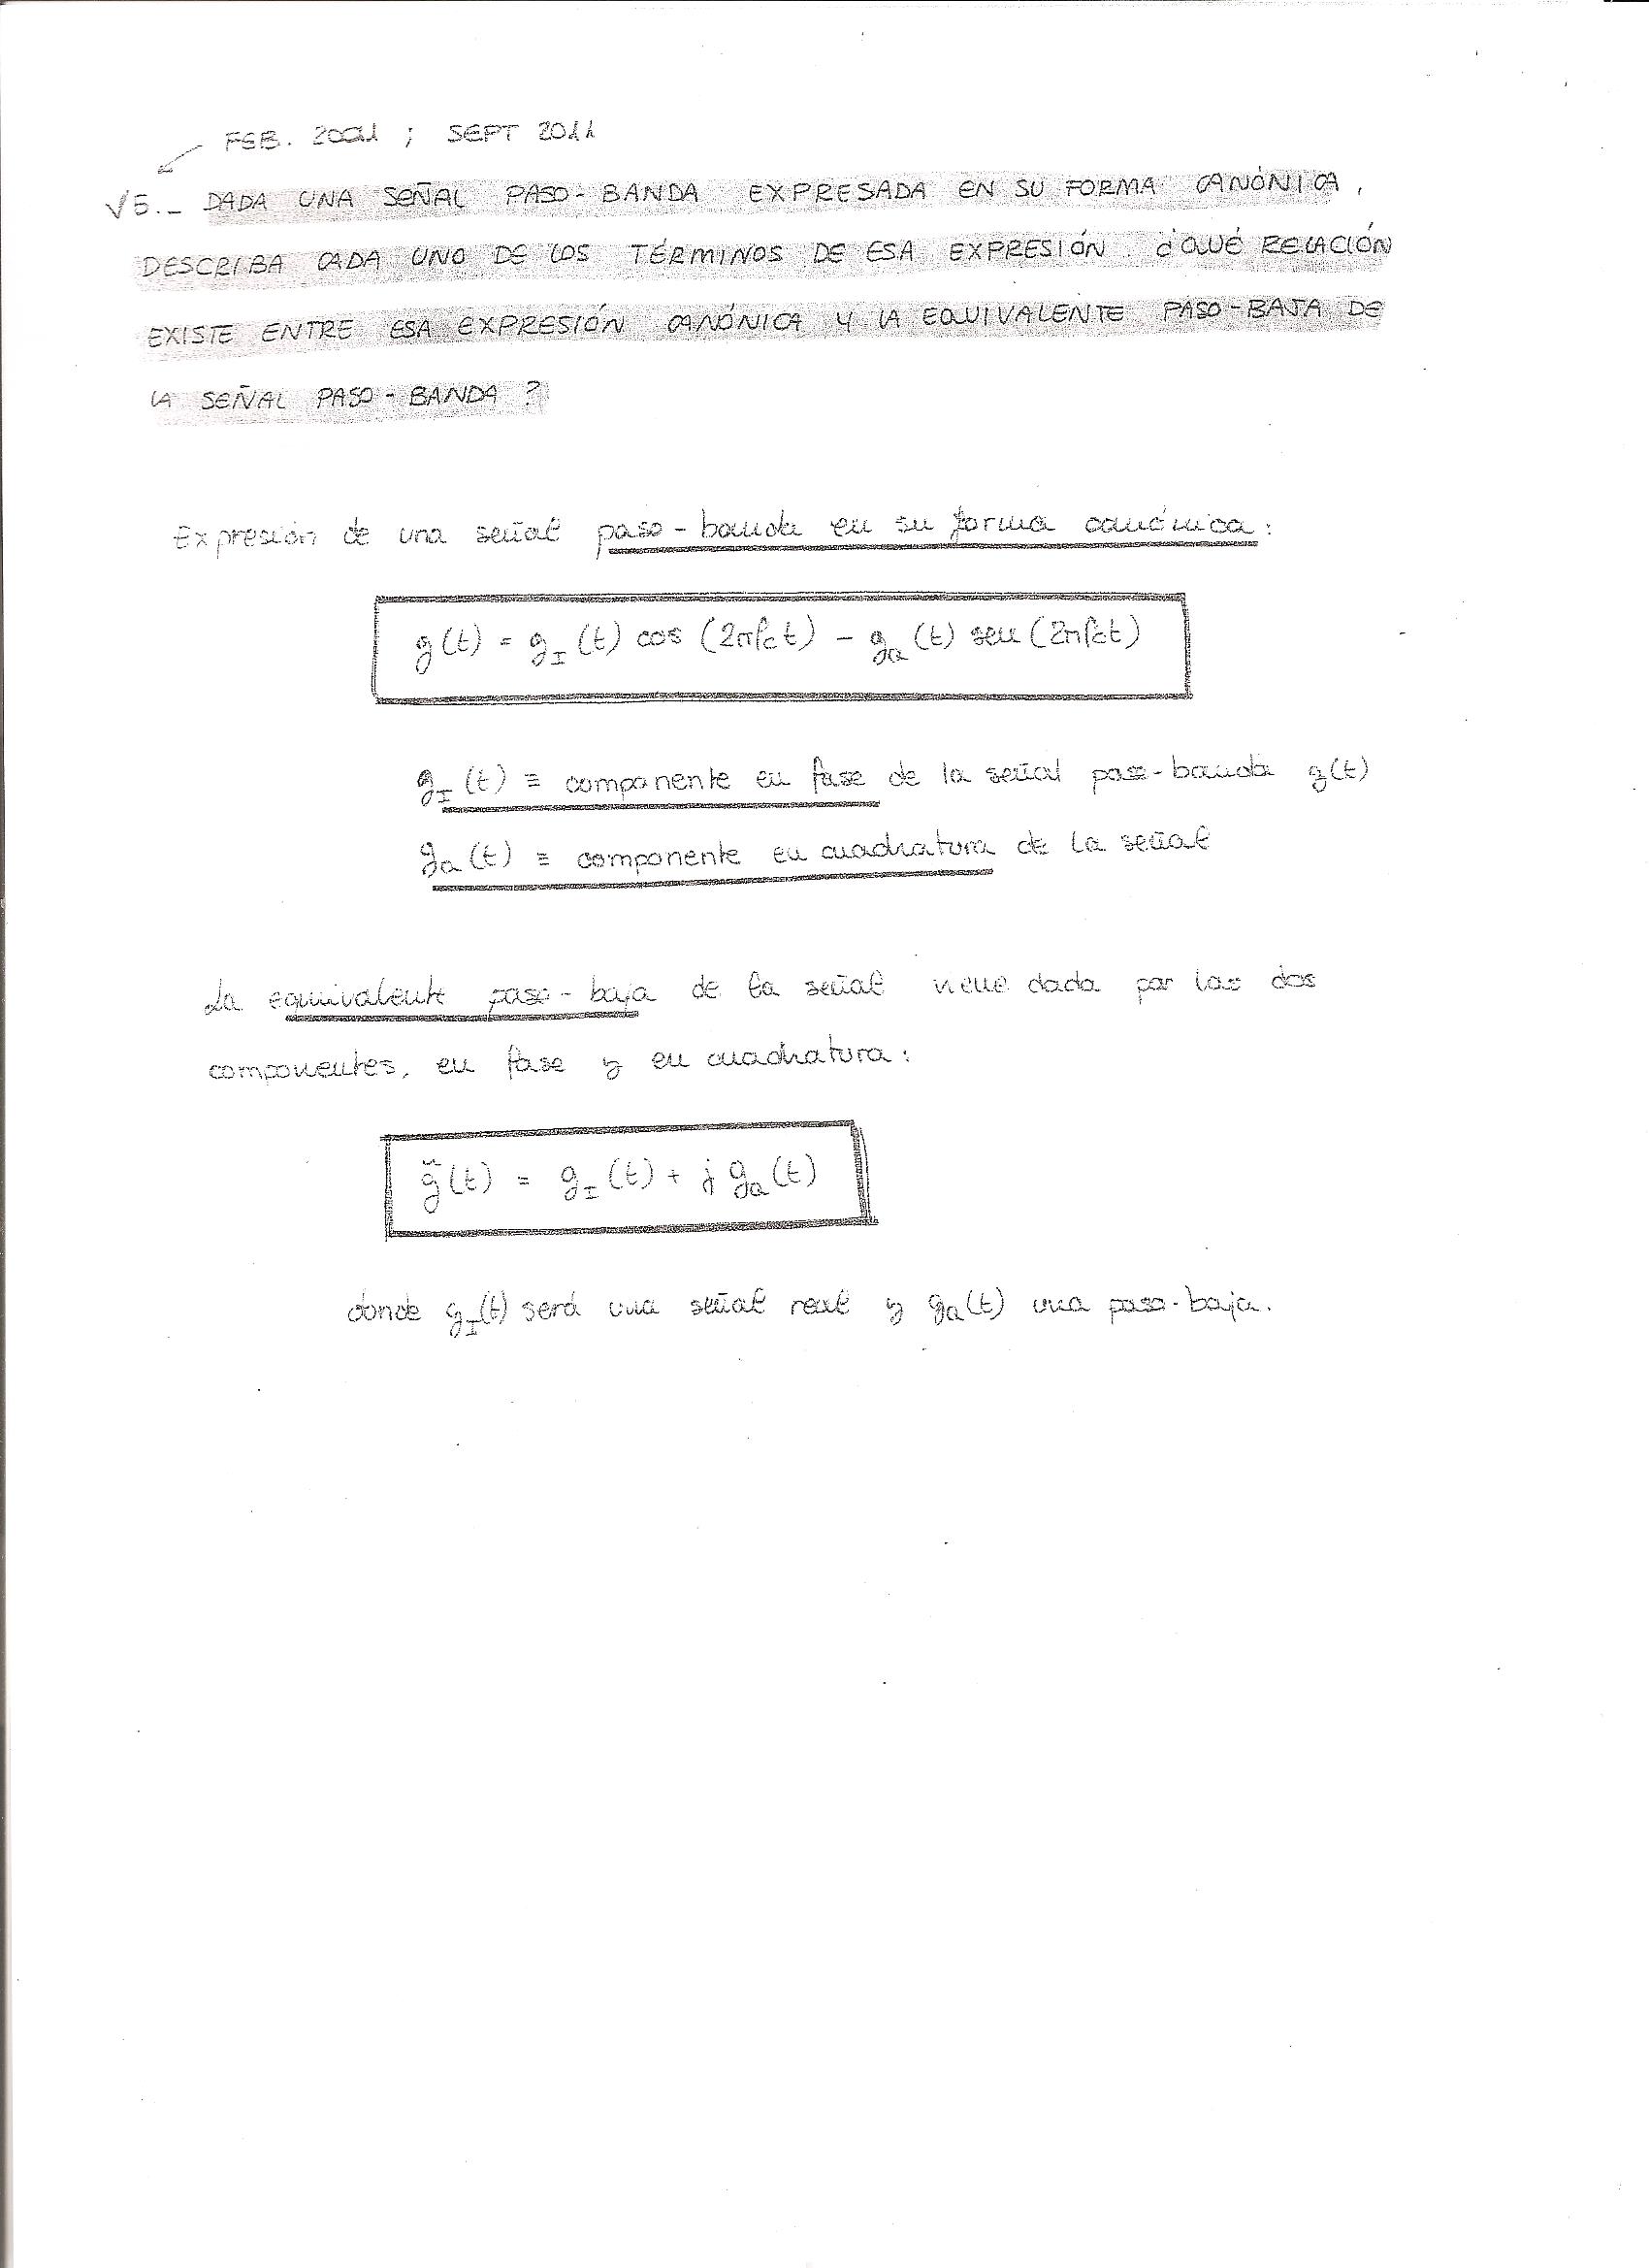 FEB. 2001 ; SEPT 2011
√5._ DADA UNA SEÑAL PASO-BANDA EXPRESADA EN SU FORMA CANÓNICA,
DESCRIBA CADA UNO DE LOS TÉRMINOS DE ESA EXPRESIÓN. ¿QUÉ RELACIÓN
EXISTE ENTRE ESA EXPRESIÓN CANÓNICA Y LA EQUIVALENTE PASO-BAJA DE
LA SEÑAL PASO-BANDA?
Expresión de una señal paso-banda en su forma canónica:
g(t) = g_I(t) cos (2πfct) - g_Q(t) sen (2πfct)
g_I(t) ≡ componente en fase de la señal paso-banda g(t)
g_Q(t) ≡ componente en cuadratura de la señal
La equivalente paso-baja de la señal viene dada por las dos
componentes, en fase y en cuadratura:
g̃(t) = g_I(t) + j g_Q(t)
donde g_I(t) será una señal real y g_Q(t) una paso-baja.